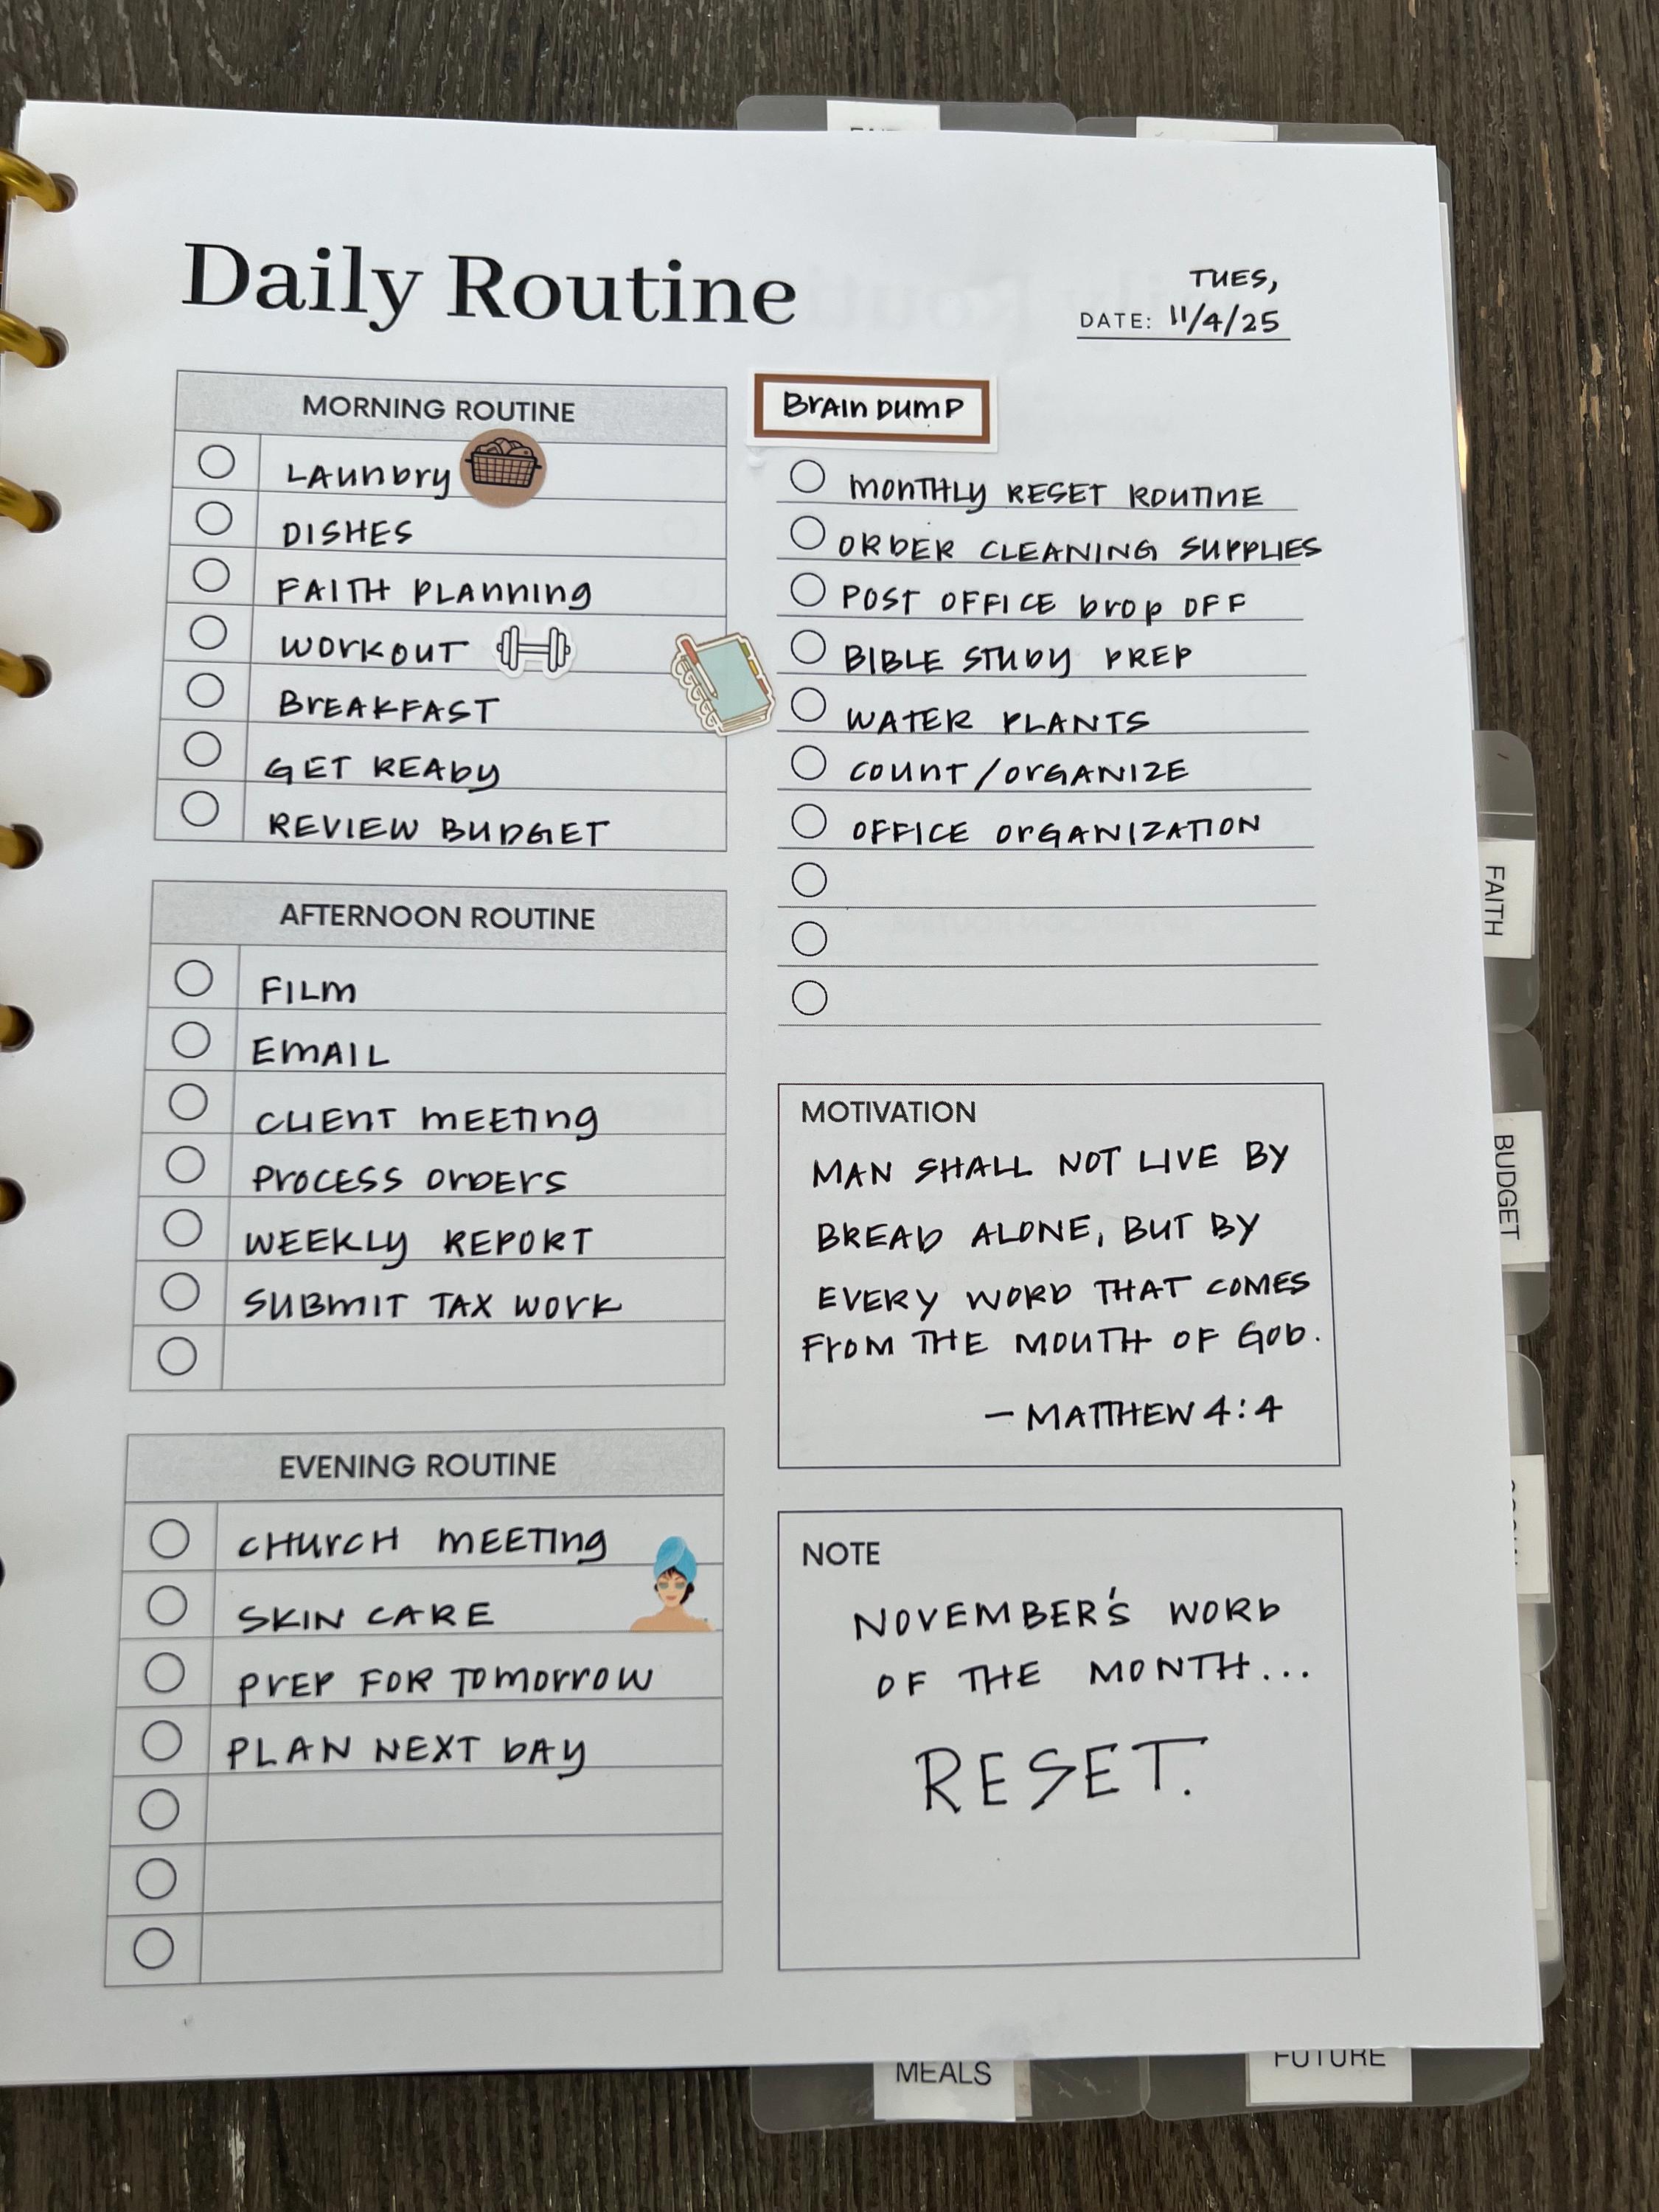 Daily Routine
TUES,
DATE: 11/4/25
MORNING ROUTINE
LAUNDRY
DISHES
FAITH PLANNING
WORKOUT
BREAKFAST
GET READY
REVIEW BUDGET
AFTERNOON ROUTINE
FILM
EMAIL
CLIENT MEETING
PROCESS ORDERS
WEEKLY REPORT
SUBMIT TAX WORK
EVENING ROUTINE
CHURCH MEETING
SKIN CARE
PREP FOR TOMORROW
PLAN NEXT DAY
BRAIN DUMP
MONTHLY RESET ROUTINE
ORDER CLEANING SUPPLIES
POST OFFICE DROP OFF
BIBLE STUDY PREP
WATER PLANTS
COUNT/ORGANIZE
OFFICE ORGANIZATION
MOTIVATION
MAN SHALL NOT LIVE BY
BREAD ALONE, BUT BY
EVERY WORD THAT COMES
FROM THE MOUTH OF GOD.
- MATTHEW 4:4
NOTE
NOVEMBER'S WORD
OF THE MONTH...
RESET.
FAITH
BUDGET
MEALS
FUTURE